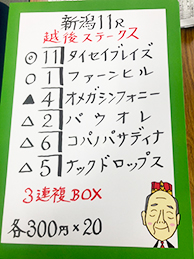 新潟11R
越後ステークス
◎ 11 タイセイブレイズ
○ 1 ファーンヒル
▲ 4 オメガシンフォニー
△ 2 バウオレ
△ 6 コパノパサディナ
△ 5 ナックドロップス
3連複BOX
各300円×20